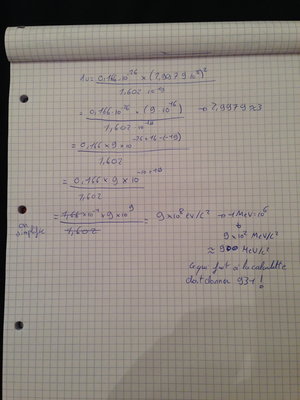 1u = 0,166.10^-26 × (2,9979.10^8)^2 / 1,602.10^-19
= 0,166.10^-26 × (9.10^16) / 1,602.10^-19 → 2,9979≈3
= 0,166 × 9 × 10^-26+16-(-19) / 1,602
= 0,166 × 9 × 10^-10+19 / 1,602
on simplifie = 1,66×10^-1 × 9×10^9 / 1,602 = 9×10^8 eV/c² → 1 MeV=10^6
9×10^2 MeV/c²
≈ 900 MeV/c²
ce qui fait à la calculette
doit donner 931 !